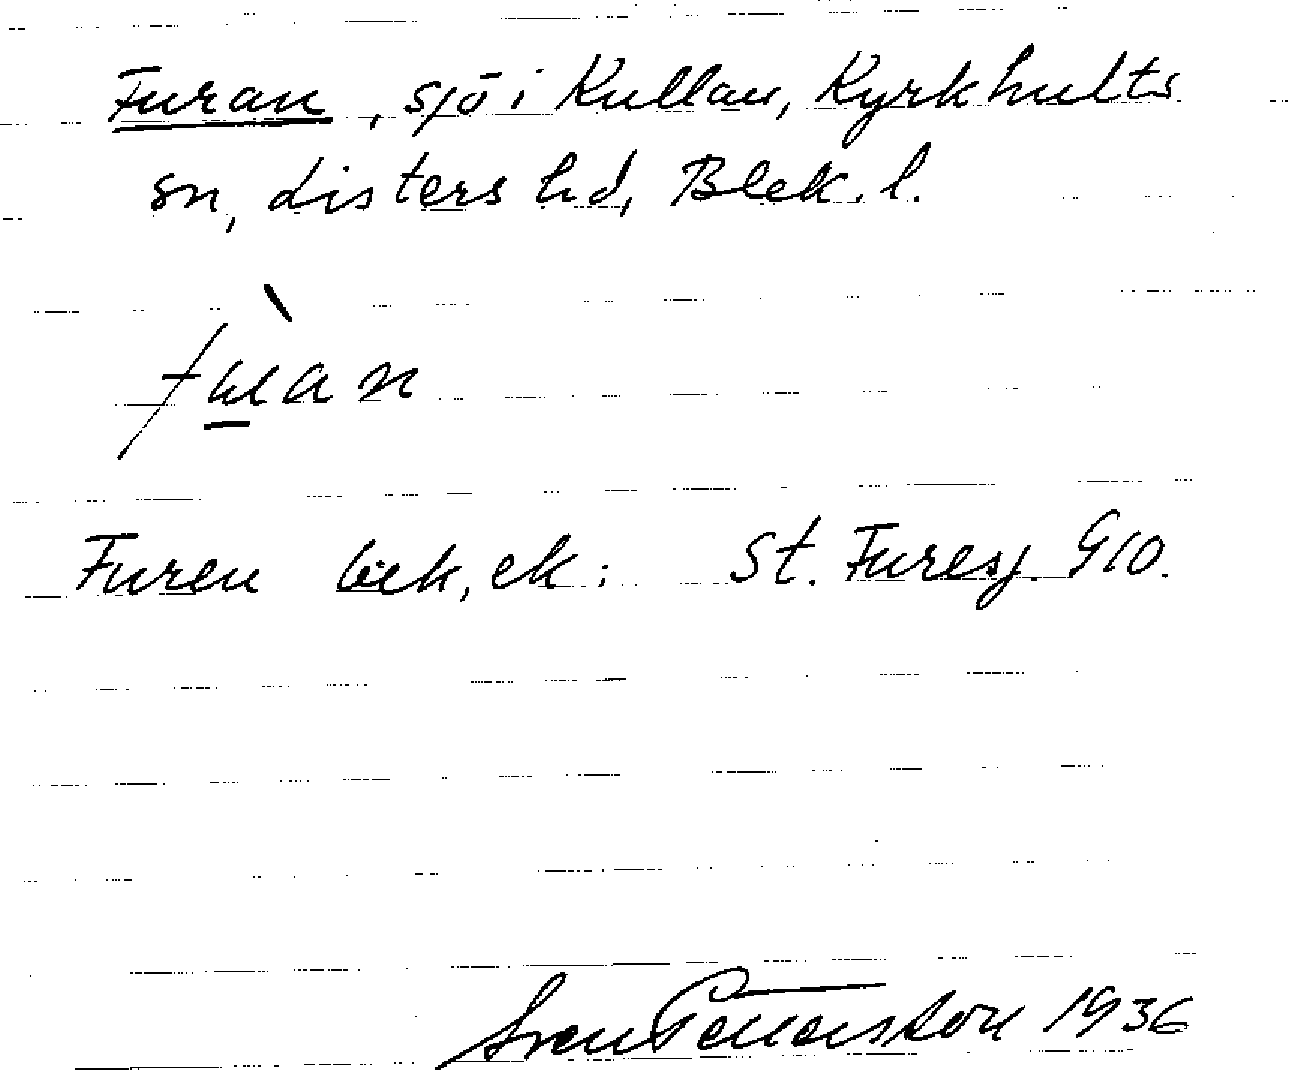 Furan, sjö i Kullan, Kyrkhults
sn, Listers hd, Blek. l.
Furen bek, ek: St. Furesj. G10.
Sven Pettersson 1936